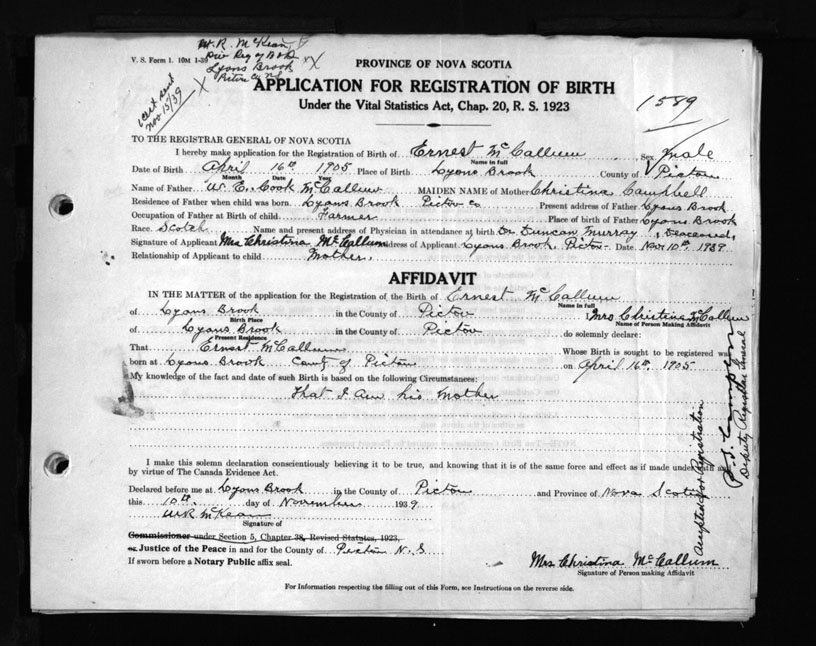 V. S. Form 1. 10M 1-39
W. R. McKean
Div Reg of B & D
Lyons Brook
Pictou Co. N.S.
Cert sent
Nov 13/39
PROVINCE OF NOVA SCOTIA
APPLICATION FOR REGISTRATION OF BIRTH
Under the Vital Statistics Act, Chap. 20, R. S. 1923
1589
TO THE REGISTRAR GENERAL OF NOVA SCOTIA
I hereby make application for the Registration of Birth of Ernest McCallum Sex Male
Name in full
Date of Birth April 16th 1905 Place of Birth Lyons Brook County of Pictou
Month Date Year
Name of Father W. E. Cook McCallum MAIDEN NAME of Mother Christina Campbell
Residence of Father when child was born. Lyons Brook Pictou Co Present address of Father Lyons Brook
Occupation of Father at Birth of child. Farmer Place of birth of Father Lyons Brook
Race. Scotch Name and present address of Physician in attendance at birth Dr. Duncan Murray, Deceased,
Signature of Applicant Mrs Christina McCallum Address of Applicant Lyons Brook, Pictou Date Nov 10th, 1939
Relationship of Applicant to child Mother.
AFFIDAVIT
IN THE MATTER of the application for the Registration of the Birth of Ernest McCallum
Name in full
of Lyons Brook in the County of Pictou Mrs Christina McCallum
Birth Place Name of Person Making Affidavit
of Lyons Brook in the County of Pictou do solemnly declare:
Present Residence
That Ernest McCallum Whose Birth is sought to be registered was
born at Lyons Brook County of Pictou on April 16th, 1905
My knowledge of the fact and date of such Birth is based on the following Circumstances:
That I am his Mother
I make this solemn declaration conscientiously believing it to be true, and knowing that it is of the same force and effect as if made under oath and
by virtue of The Canada Evidence Act.
Declared before me at Lyons Brook in the County of Pictou and Province of Nova Scotia
this 10th day of November 1939
W R McKean
Signature of
Commissioner under Section 5, Chapter 38, Revised Statutes, 1923,
or Justice of the Peace in and for the County of Pictou N. S
If sworn before a Notary Public affix seal.
Mrs. Christina McCallum
Signature of Person making Affidavit
For Information respecting the filling out of this Form, see Instructions on the reverse side.
Accepted for Registration
Deputy Registrar General